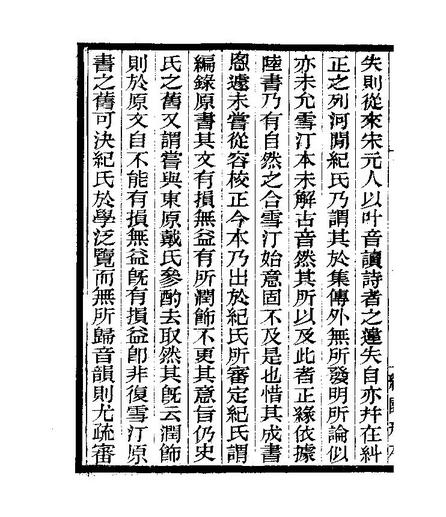 失則從來宋元人以叶音讀詩者之謬失自亦幷在糾
正之列河閒紀氏乃謂其於集傳外無所發明所論似
亦未允雪汀本未解古音然其所以及此者正緣依據
陸書乃有自然之合雪汀始意固不及是也惜其成書
恩遽未嘗從容校正今本乃出於紀氏所審定紀氏謂
編錄原書其文有損無益有所潤飾不更其意旨仍史
氏之舊又謂嘗與東原戴氏參酌去取然其旣云潤飾
則於原文自不能有損無益旣有損益卽非復雪汀原
書之舊可決紀氏於學泛覽而無所歸音韻則尤疏審